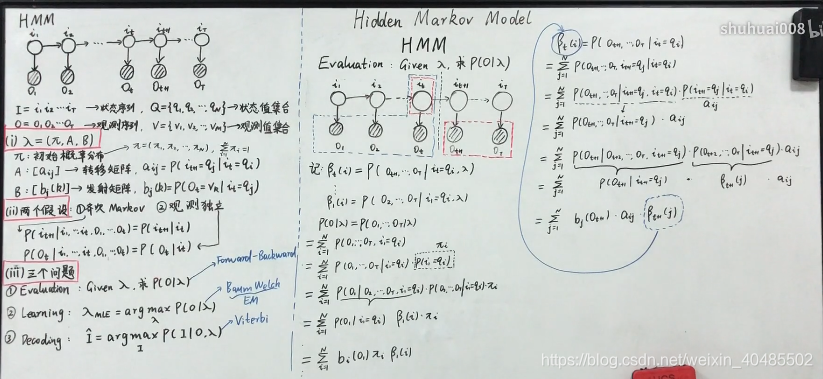 Hidden Markov Model
shuhuai008
HMM
i₁ i₂ ... i_t i_{t+1} ... i_T
O₁ O₂ O_t O_{t+1} O_T
I = i₁ i₂ ... i_T → 状态序列, Q = {q₁, q₂, ..., q_N} → 状态值集合
O = O₁ O₂ ... O_T → 观测序列, V = {v₁, v₂, ..., v_M} → 观测值集合
(i) λ = (π, A, B)
π: 初始概率分布
A: [a_{ij}] → 转移矩阵, a_{ij} = P(i_{t+1}=q_j | i_t=q_i)
B: [b_j(k)] → 发射矩阵, b_j(k) = P(O_t=v_k | i_t=q_j)
(ii) 两个假设: ①齐次 Markov ②观测独立
P(i_{t+1} | i_t, ... i₁, O_t, ... O₁) = P(i_{t+1} | i_t)
P(O_t | i_t, ... i₁, O_{t-1}, ... O₁) = P(O_t | i_t)
(iii) 三个问题
① Evaluation: Given λ, 求 P(O|λ)
Forward-Backward
② Learning: λ_{MLE} = arg max_λ P(O|λ)
Baum Welch
EM
③ Decoding: Î = arg max_I P(I|O,λ)
Viterbi
HMM
Evaluation: Given λ, 求 P(O|λ)
i₁ i₂ i_t i_{t+1} i_T
O₁ O₂ O_t O_{t+1} O_T
记: β_t(i) = P(O_{t+1}, ..., O_T | i_t=q_i, λ)
β₁(i) = P(O₂, ..., O_T | i₁=q_i, λ)
P(O|λ) = P(O₁, ..., O_T | λ)
= Σ_{i=1}^N P(O₁, ..., O_T, i₁=q_i)
π_i
= Σ_{i=1}^N P(O₁, ..., O_T | i₁=q_i) · P(i₁=q_i)
= Σ_{i=1}^N P(O₁ | O₂, ..., O_T, i₁=q_i) · P(O₂, ..., O_T | i₁=q_i) · π_i
= Σ_{i=1}^N P(O₁ | i₁=q_i) β₁(i) · π_i
= Σ_{i=1}^N b_i(O₁) π_i β₁(i)
β_t(i) = P(O_{t+1}, ..., O_T | i_t=q_i)
= Σ_{j=1}^N P(O_{t+1}, ..., O_T, i_{t+1}=q_j | i_t=q_i)
= Σ_{j=1}^N P(O_{t+1}, ..., O_T | i_{t+1}=q_j, i_t=q_i) · P(i_{t+1}=q_j | i_t=q_i)
a_{ij}
= Σ_{j=1}^N P(O_{t+1}, ..., O_T | i_{t+1}=q_j) · a_{ij}
= Σ_{j=1}^N P(O_{t+1} | O_{t+2}, ..., O_T, i_{t+1}=q_j) · P(O_{t+2}, ..., O_T | i_{t+1}=q_j) · a_{ij}
= Σ_{j=1}^N P(O_{t+1} | i_{t+1}=q_j) · β_{t+1}(j) · a_{ij}
= Σ_{j=1}^N b_j(O_{t+1}) · a_{ij} · β_{t+1}(j)
https://blog.csdn.net/weixin_40485502